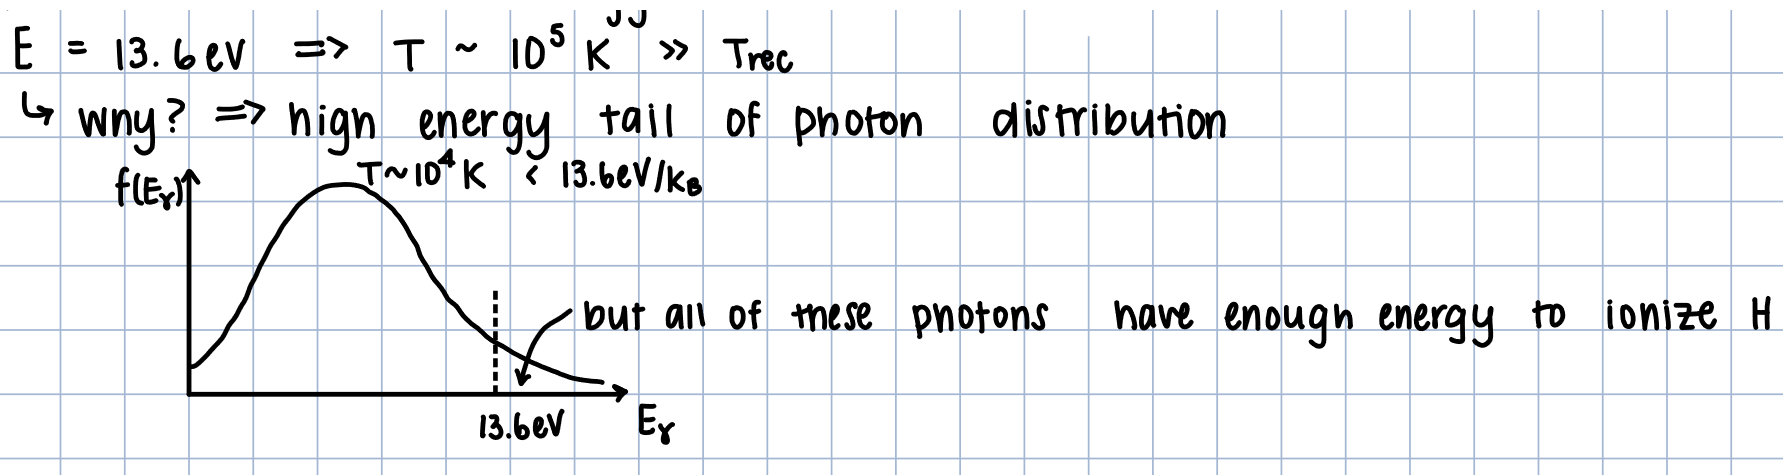 E = 13.6eV => T ~ 10⁵ K >> Trec
↳ why? => high energy tail of photon distribution
T~10⁴K < 13.6eV/kB
f(Eγ)
but all of these photons have enough energy to ionize H
13.6eV
Eγ